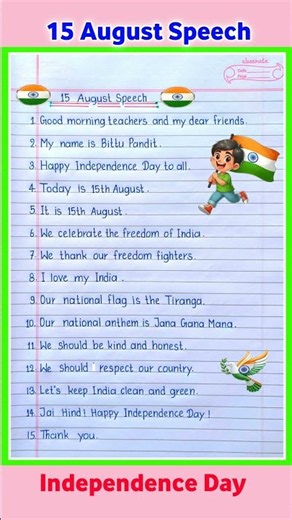 15 August Speech
classmate
Date
Page
15 August Speech
1. Good morning teachers and my dear friends.
2. My name is Bittu Pandit.
3. Happy Independence Day to all.
4. Today is 15th August.
5. It is 15th August.
6. We celebrate the freedom of India.
7. We thank our freedom fighters.
8. I love my India.
9. Our national flag is the Tiranga.
10. Our national anthem is Jana Gana Mana.
11. We should be kind and honest.
12. We should respect our country.
13. Let's keep India clean and green.
14. Jai Hind! Happy Independence Day!
15. Thank you.
Independence Day